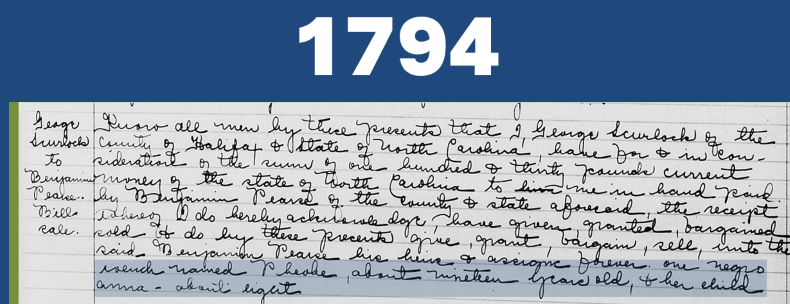 1794
George
Scurlock
to
Benjamin
Pearse.
Bill
sale.
Know all men by these presents that I, George Scurlock of the
County of Halifax & State of North Carolina, have for & in con-
sideration of the sum of one hundred & thirty pounds current
money of the state of North Carolina to him me in hand paid
by Benjamin Pearse of the County & state aforesaid, the receipt
whereof I do hereby acknowledge, have given, granted, bargained
sold & do by these presents give, grant, bargain, sell, unto the
said Benjamin Pearse his heirs & assigns forever. one negro
wench named Phebe, about nineteen years old, & her child
anna - about eight